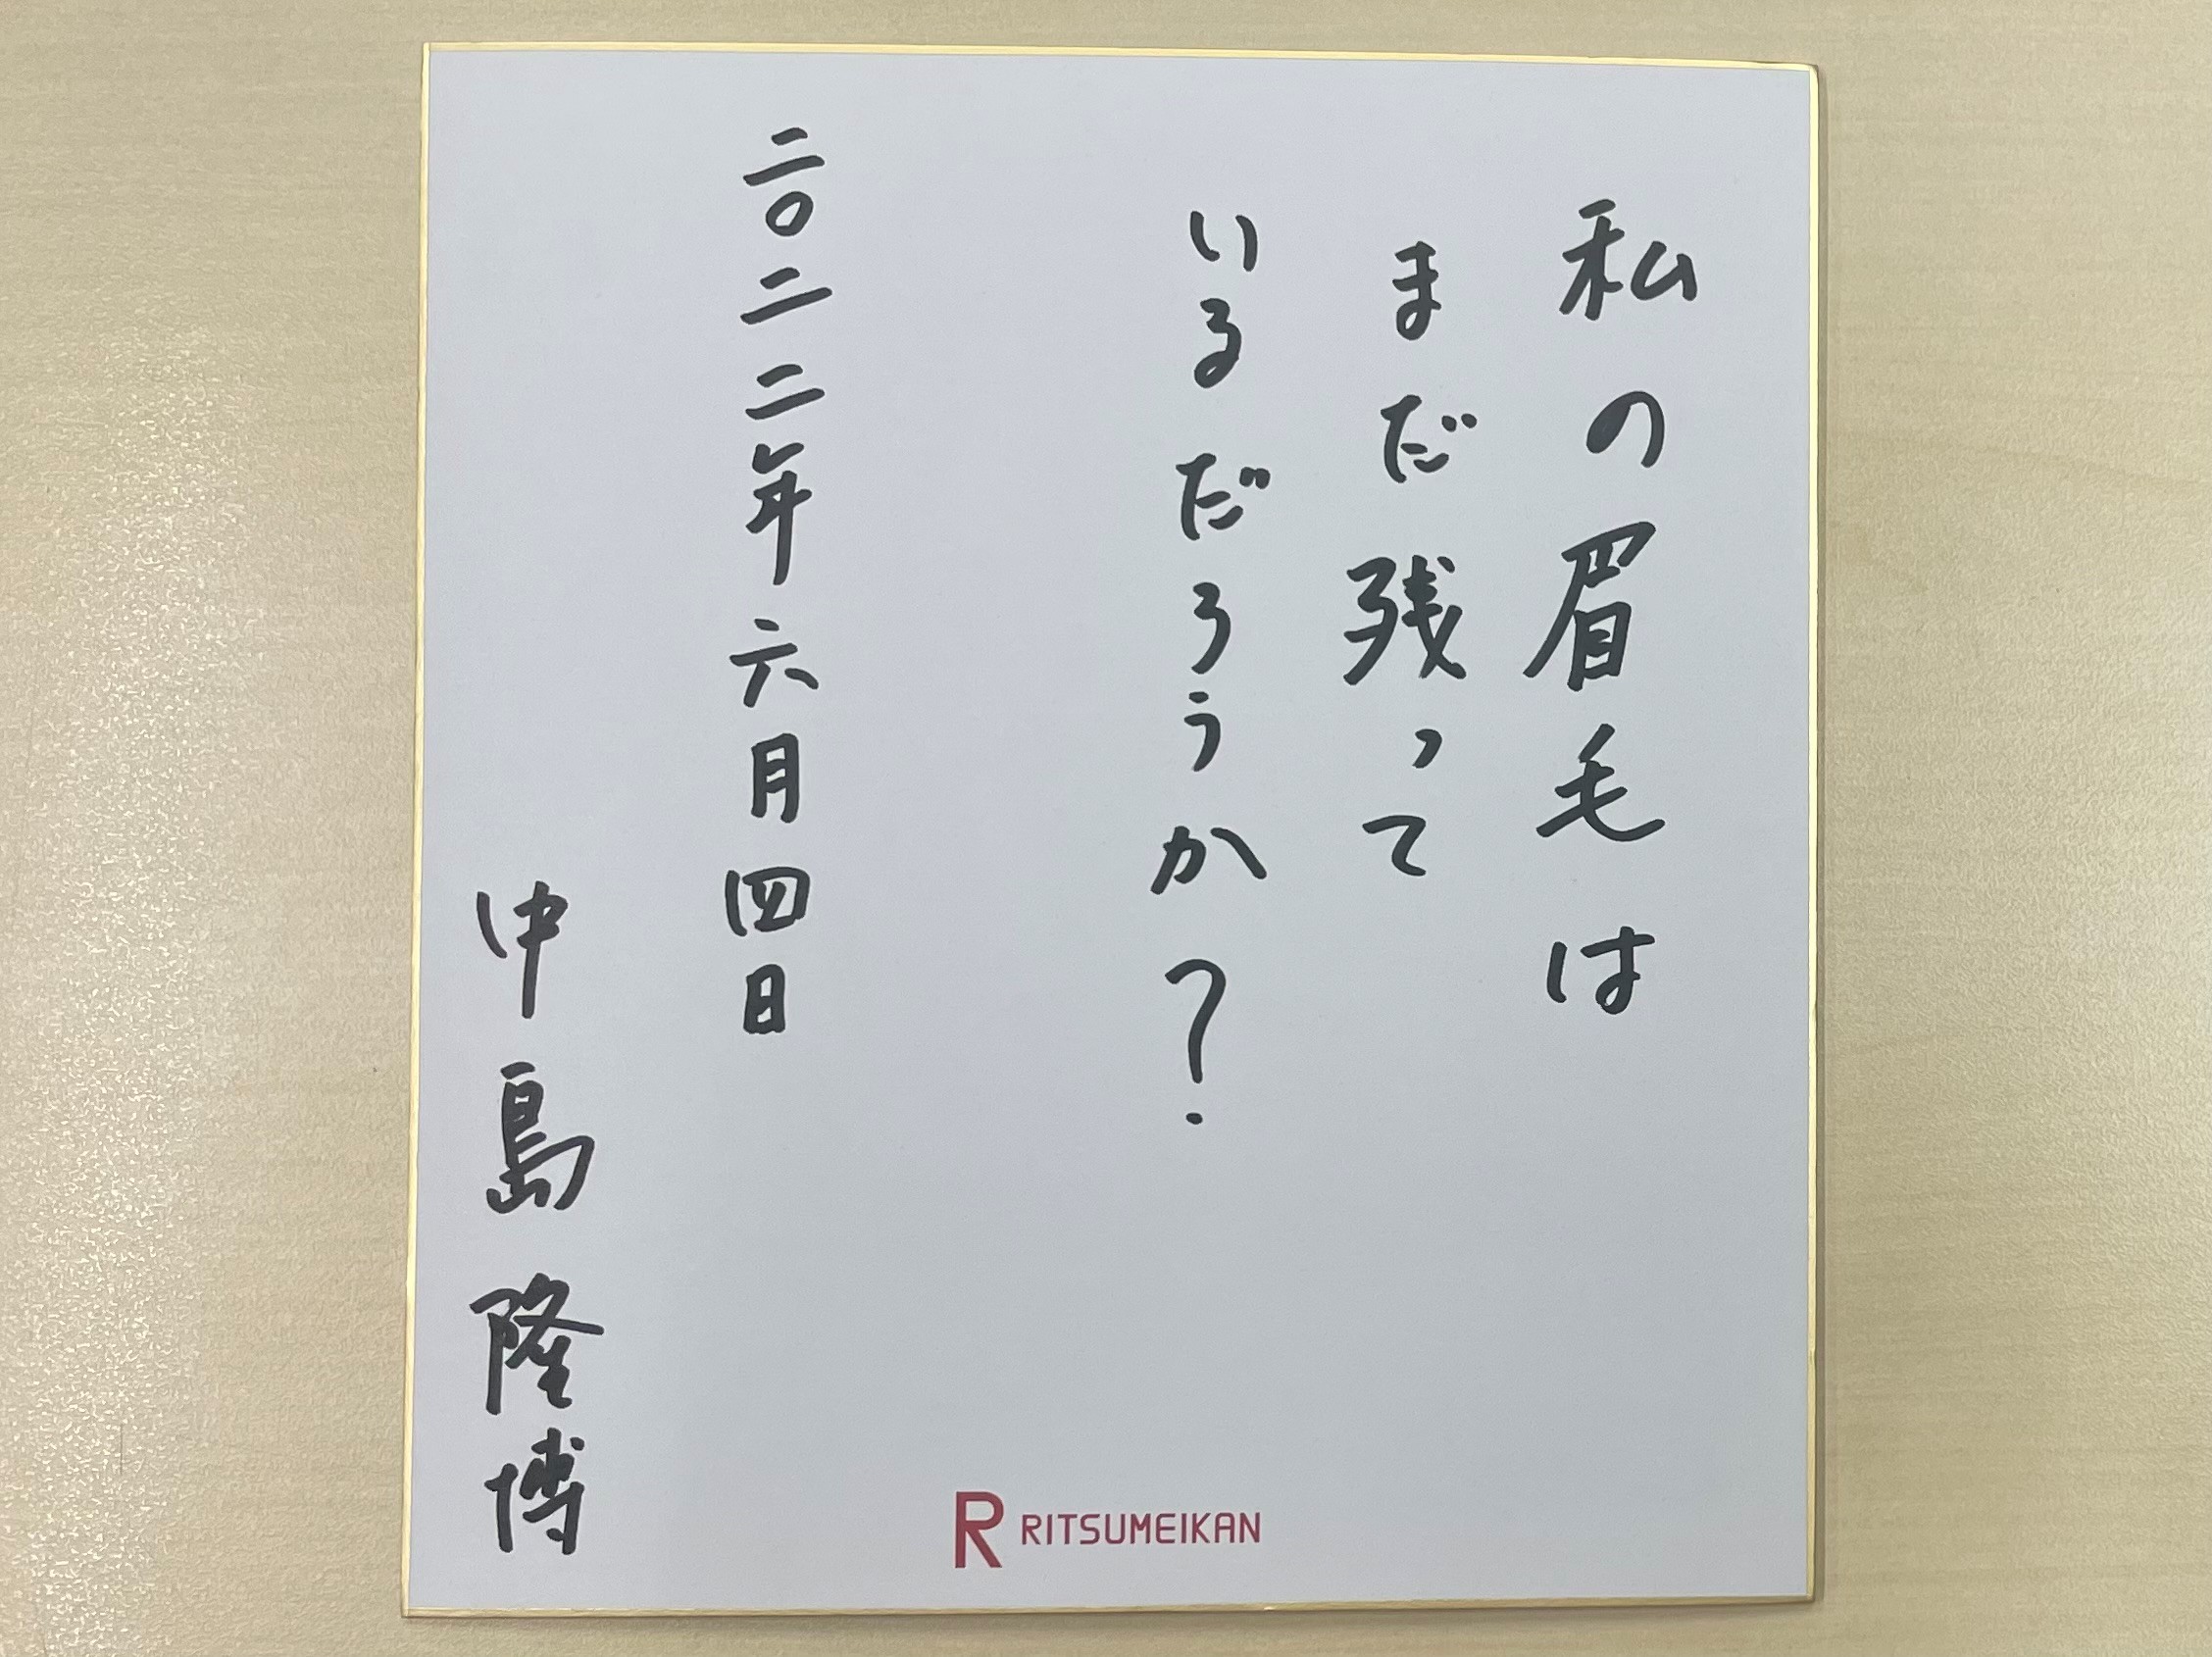 私の眉毛は
まだ残って
いるだろうか?
二〇二二年六月四日
中島隆博
R RITSUMEIKAN